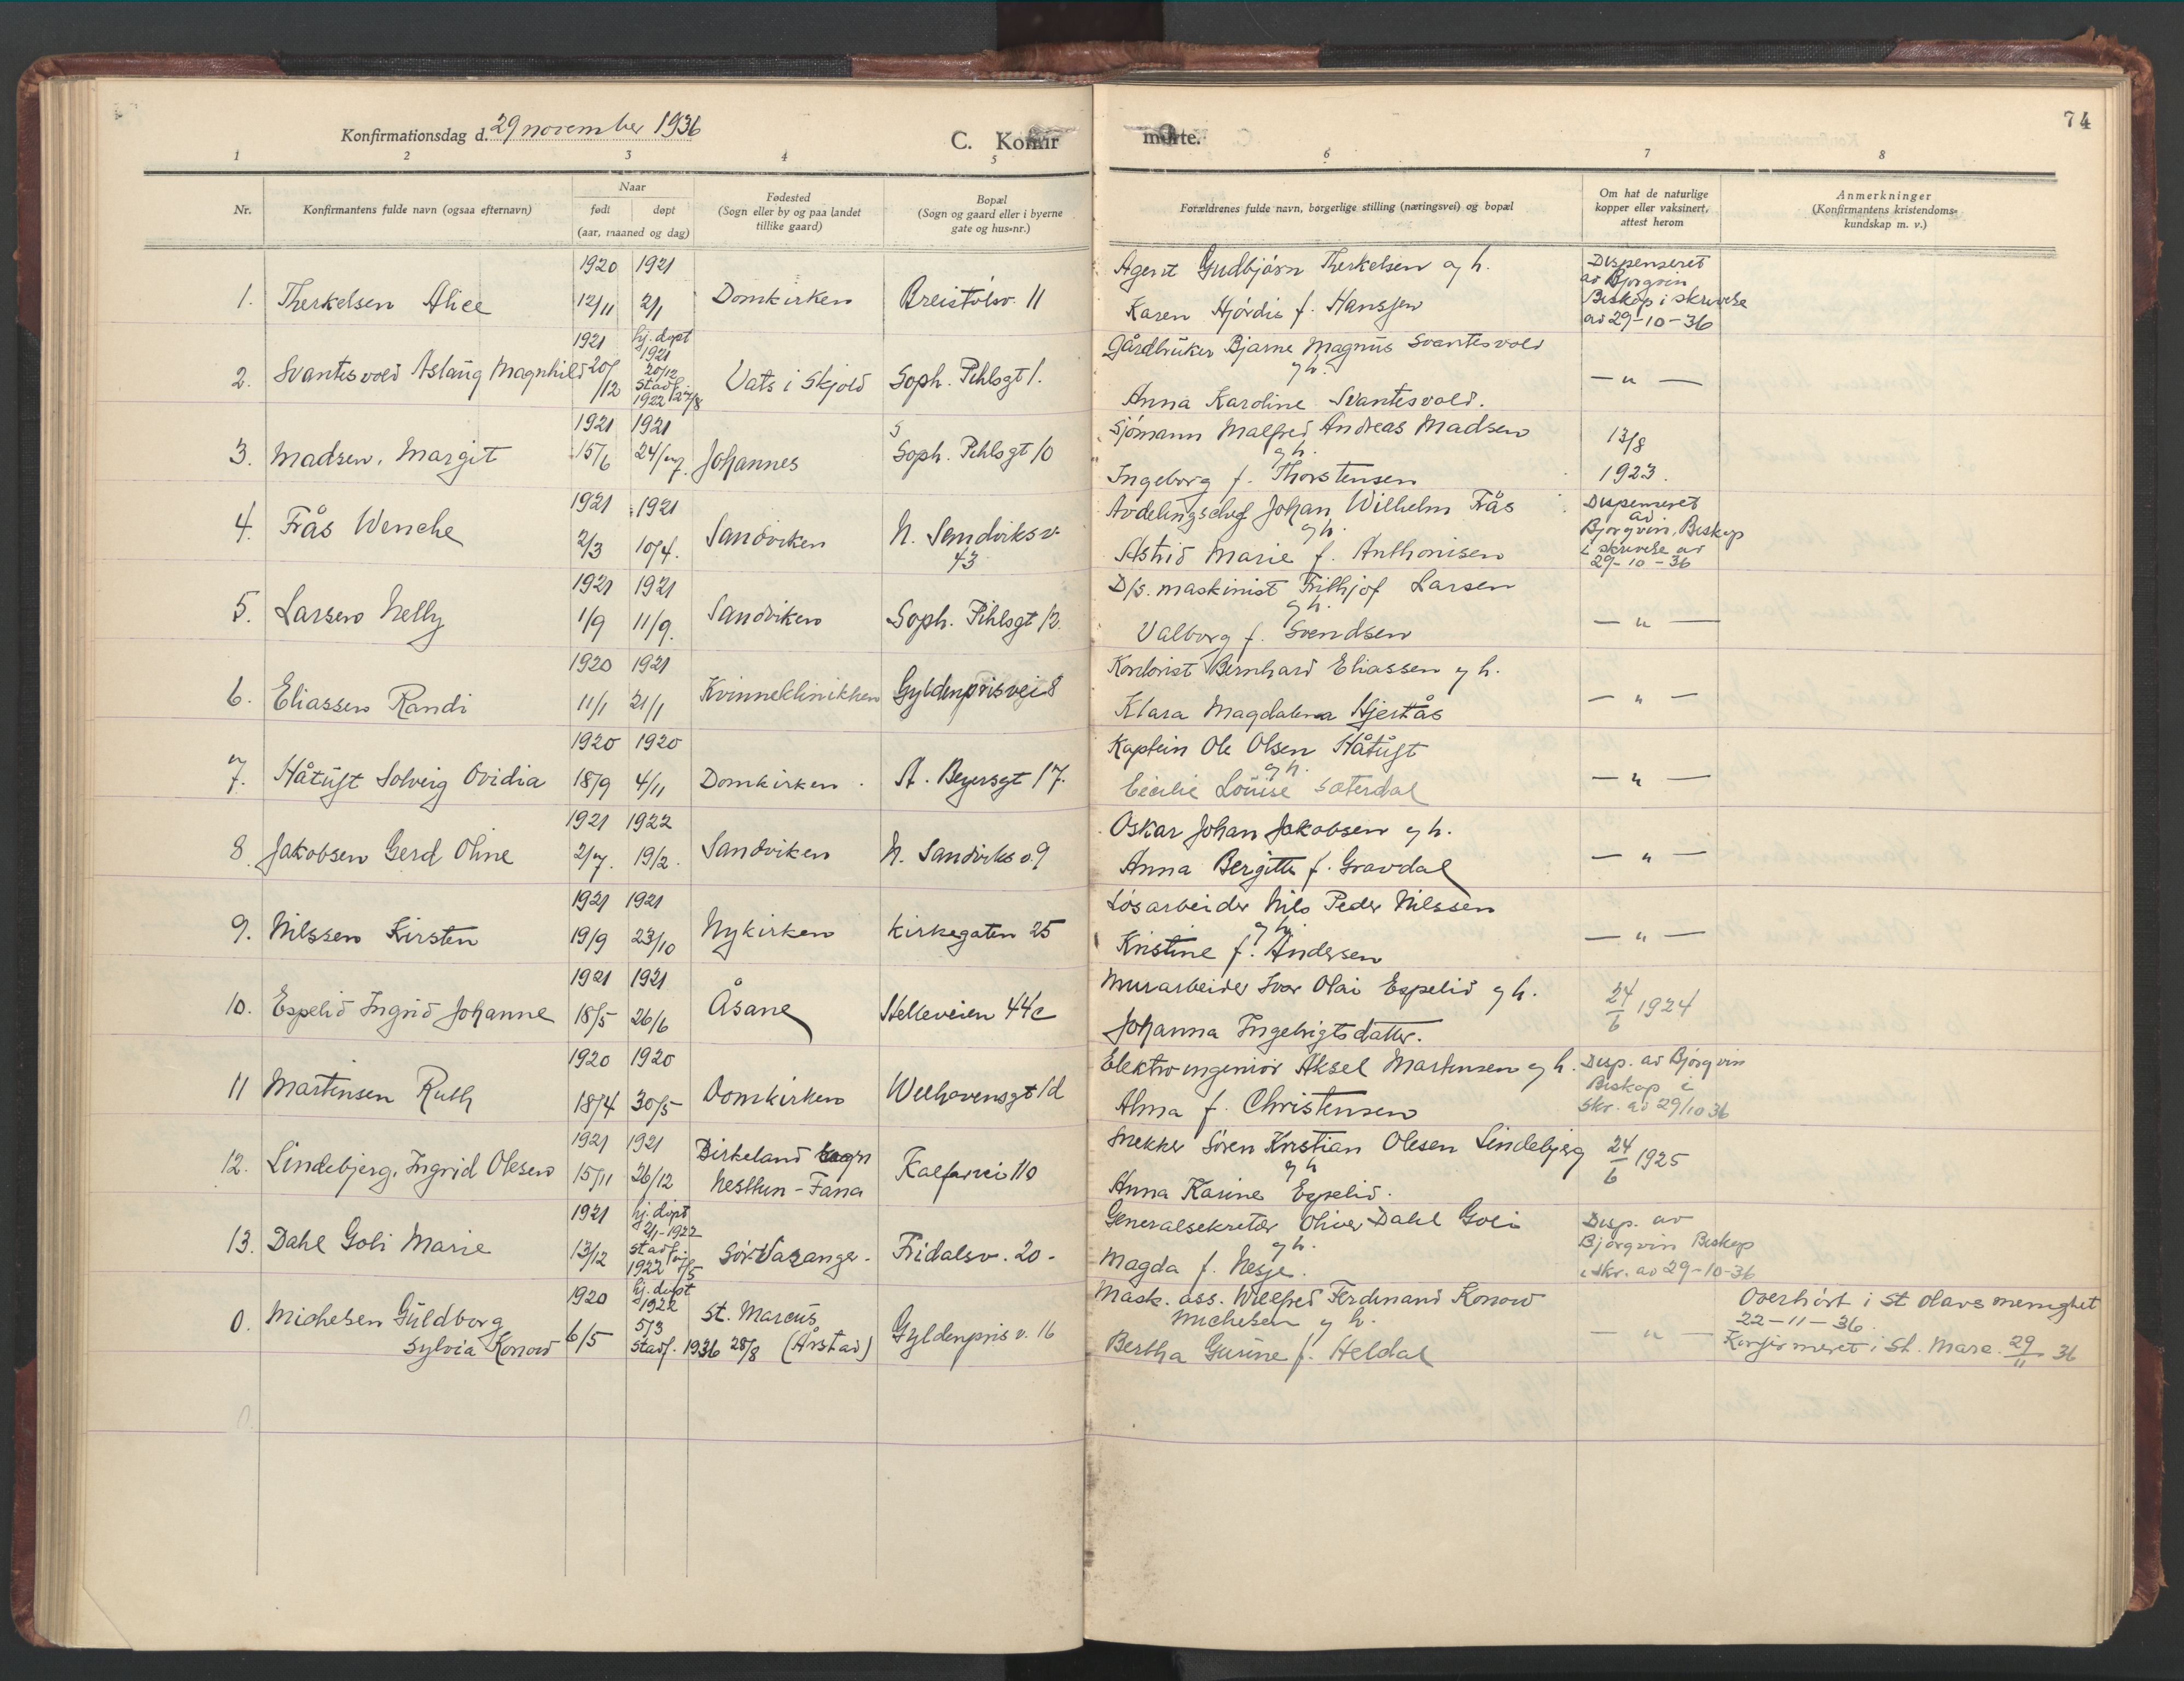 Konfirmationsdag d. 29 november 1936
C. Konfirmerte.
74
1 2 3 4 5 6 7 8
Nr.
Konfirmantens fulde navn (ogsaa efternavn)
Naar
født døpt
(aar, maaned og dag)
Fødested
(Sogn eller by og paa landet
tillike gaard)
Bopæl
(Sogn og gaard eller i byerne
gate og hus-nr.)
Forældrenes fulde navn, borgerlige stilling (næringsvei) og bopæl
Om hat de naturlige
kopper eller vaksinert,
attest herom
Anmerkninger
(Konfirmantens kristendoms-
kundskap m. v.)
1920 1921
1. Therkelsen Alice 12/11 2/1 Domkirken Breistølsv. 11
Agent Gudbjørn Therkelsen og h.
Karen Hjørdis f. Hanssen
Dispenseret
av Bjørgvin
Biskop i skrivelse
av 29-10-36
1921 hj. døpt
1921
2. Svantesvold Aslaug Magnhild 20/12 20/12 Vats i Skjold Soph. Pihlsgt 1.
stadf.
1922 27/8
Gårdbruker Bjarne Magnus Svantesvold
og h.
Anna Karoline Svantesvold.
— " —
1921 1921
3. Madsen, Margit 15/6 24/7. Johannes Soph. Pihlsgt 10
Sjømann Malfred Andreas Madsen
og h.
Ingeborg f. Thorstensen
13/8
1923.
1921 1921
4. Frås Wenche 2/3 10/4. Sandviken N. Sandviksv.
43
Avdelingschef Johan Wilhelm Frås
og h.
Astrid Marie f. Anthonisen
Dispenseret
av
Bjørgvin, Biskop
i skrivelse av
29-10-36
1921 1921
5. Larsen Nelly 1/9 11/9. Sandviken Soph. Pihlsgt 12.
D/s. maskinist Frithjof Larsen
og h.
Valborg f. Svendsen
— " —
1920 1921
6. Eliassen Randi 11/1 21/1 Kvinneklinikken Gyldenprisvei 8
Kontorist Bernhard Eliassen og h.
Klara Magdalena Hjertås
— " —
1920 1920
7. Håtuft Solveig Ovidia 18/9 4/11 Domkirken. A. Beyersgt 17.
Kaptein Ole Olsen Håtuft
og h.
Cecilie Louise Sæterdal
— " —
1921 1922
8. Jakobsen Gerd Oline 2/7. 19/2. Sandviken N. Sandviksv. 9
Oskar Johan Jakobsen og h.
Anna Bergitte f. Gravdal
— " —
1921 1921
9. Nilssen Kirsten 19/9 23/10 Nykirken Kirkegaten 25
Løsarbeider Nils Peder Nilssen
og h.
Kristine f. Andersen
— " —
1921 1921
10. Espelid Ingrid Johanne 18/5 26/6 Åsane Helleveien 44c
Murarbeider Ivar Olai Espelid og h.
Johanna Ingebrigtsdatter.
24/6 1924
1920 1920
11 Martinsen Ruth 18/4 30/5 Domkirken Welhavensgt 1d
Elektroingeniør Aksel Martinsen og h.
Alma f. Christensen
Disp. av Bjørgvin
Biskop i
skr. av 29/10 36
1921 1921
12. Lindebjerg, Ingrid Olesen 15/11 26/12 Birkeland sogn
Nesttun - Fana Kalfarvei 110
Snekker Søren Kristian Olesen Lindebjerg
og h
Anna Karine Espelid.
24/6 1925
1921 hj. døpt
2/1-1922
13. Dahl Goli Marie 13/12 stadf. Sør-Varanger. Fridalsv. 20-
1922 7/5
Generalsekretær Oliver Dahl Goli
og h.
Magda f. Nesje.
Disp. av
Bjørgvin Biskop
i skr. av 29-10-36
1920 hj. døpt
1922
0. Michelsen Guldborg 6/5 5/3 St. Marcus Gyldenpris v. 16
Sylvia Konow stadf. 1936 28/8 (Årstad)
Mask. ass. Willfred Ferdinand Konow
Michelsen og h.
Bertha Gurine f. Heldal
— " —
Overhørt i St Olavs menighet
22-11-36.
Konfirmeret i St. Marc. 29/11 36